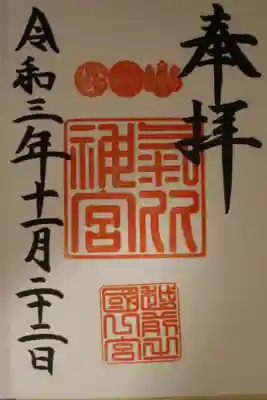 奉拝
氣比神宮
越前之國一宮
令和三年十一月二十二日